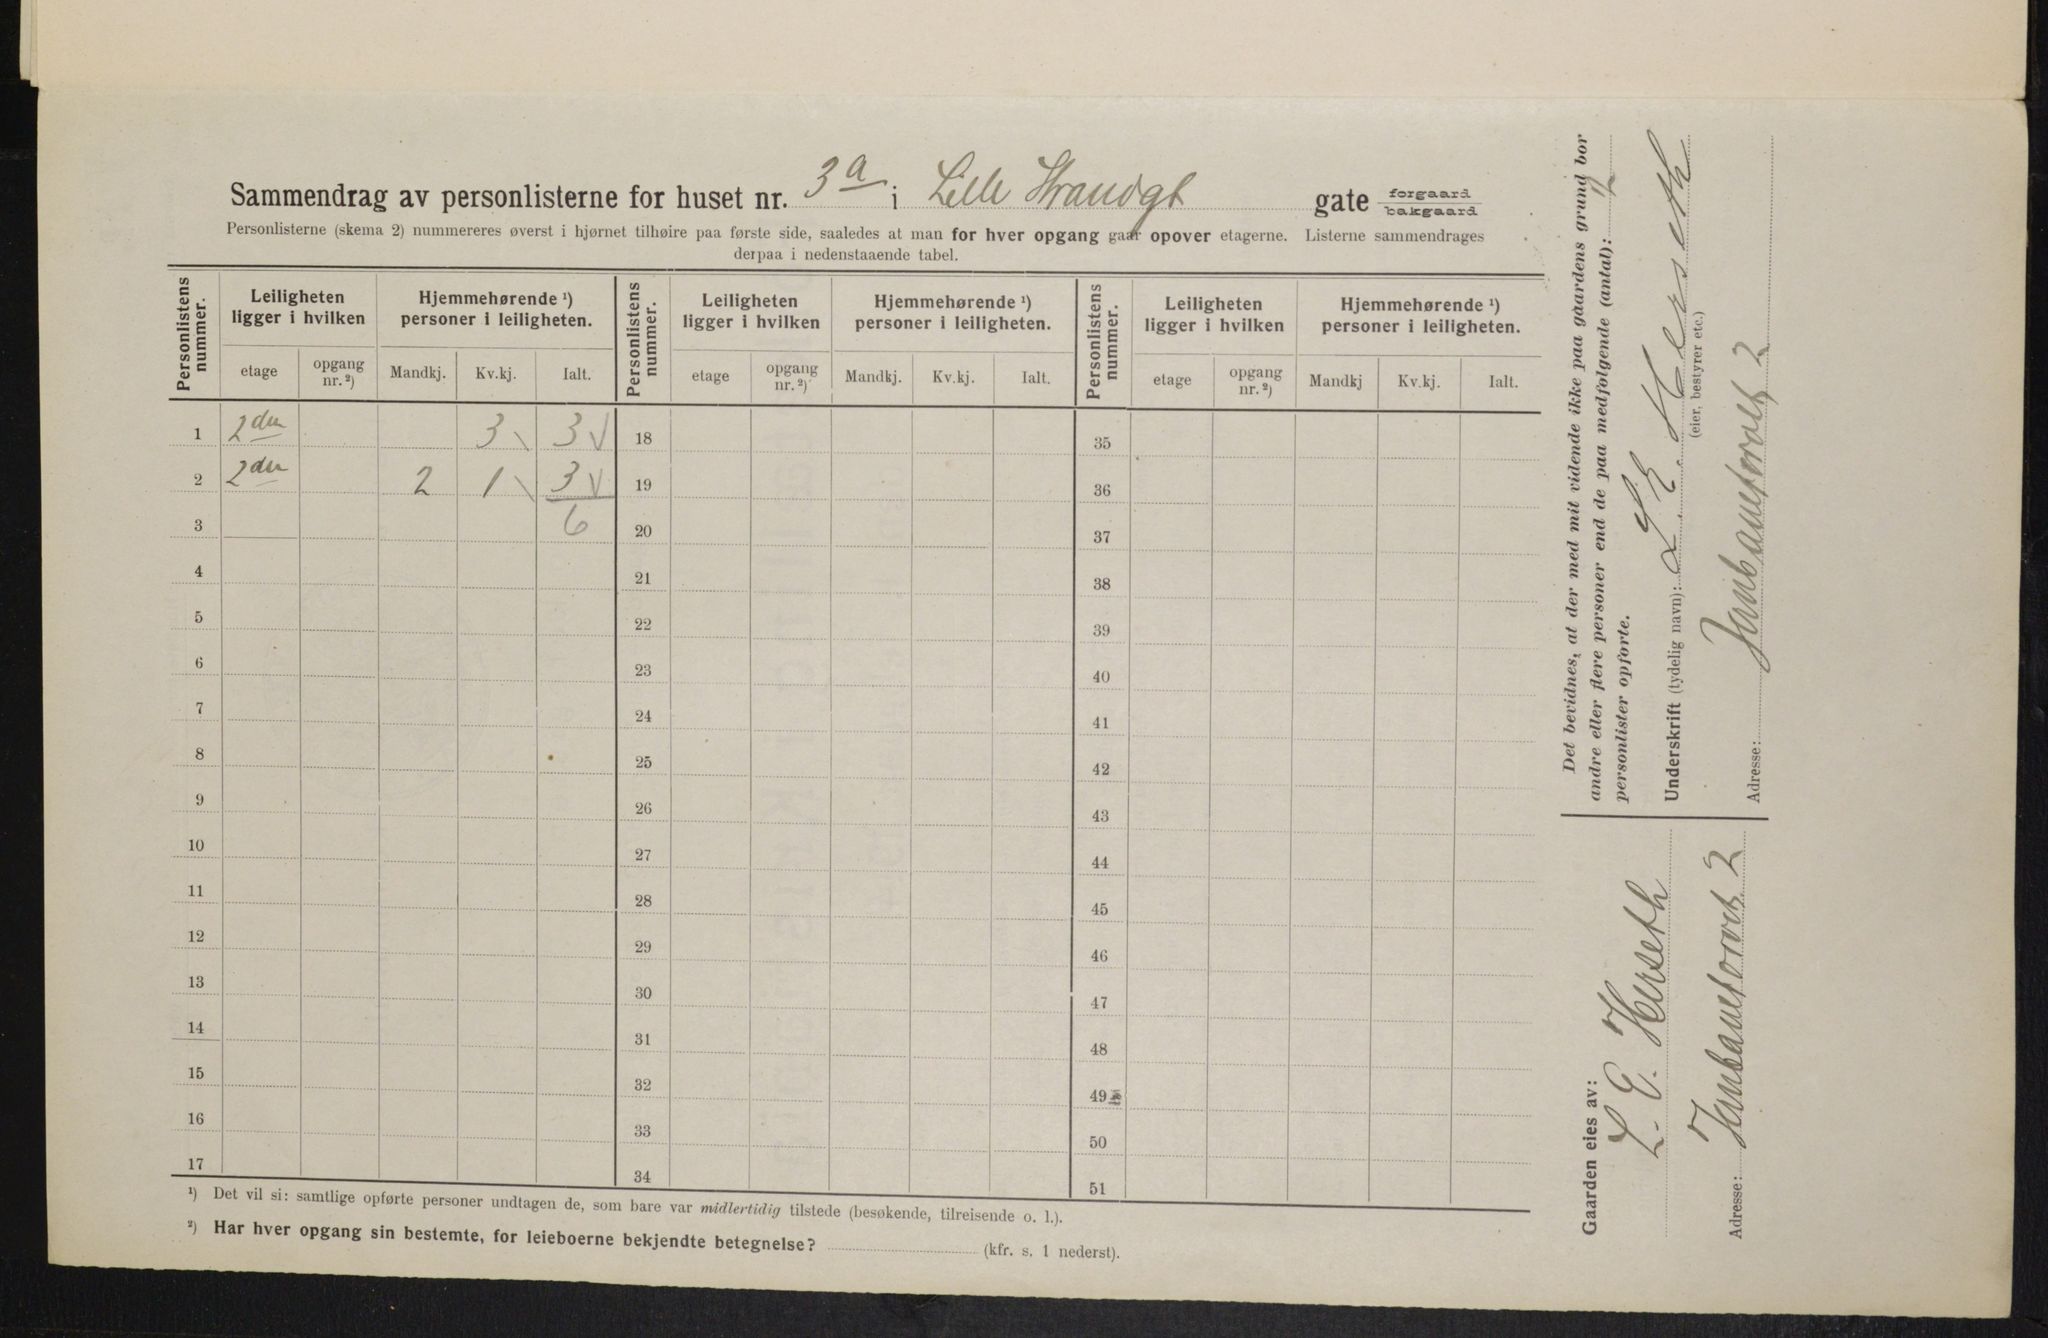 Sammendrag av personlisterne for huset nr. 3a i Lille Strandgt gate forgaard bakgaard
Personlisterne (skema 2) nummereres øverst i hjørnet tilhøire paa første side, saaledes at man for hver opgang gaar opover etagerne. Listerne sammendrages
derpaa i nedenstaaende tabel.
Personlistens nummer. Leiligheten ligger i hvilken Hjemmehørende ¹) personer i leiligheten. Personlistens nummer. Leiligheten ligger i hvilken Hjemmehørende ¹) personer i leiligheten. Personlistens nummer. Leiligheten ligger i hvilken Hjemmehørende ¹) personer i leiligheten.
etage opgang nr. ²) Mandkj. Kv.kj. Ialt. etage opgang nr. ²) Mandkj. Kv.kj. Ialt. etage opgang nr. ²) Mandkj Kv.kj. Ialt.
1 2den 3 3 18 35
2 2den 2 1 3 19 36
3 6 20 37
4 21 38
5 22 39
6 23 40
7 24 41
8 25 42
9 26 43
10 27 44
11 28 45
12 29 46
13 30 47
14 31 48
15 32 49
16 33 50
17 34 51
¹) Det vil si: samtlige opførte personer undtagen de, som bare var midlertidig tilstede (besøkende, tilreisende o. l.).
²) Har hver opgang sin bestemte, for leieboerne bekjendte betegnelse? (kfr. s. 1 nederst).
Det bevidnes, at der med mit vidende ikke paa gaardens grund bor
andre eller flere personer end de paa medfølgende (antal): 2
personlister opførte.
Underskrift (tydelig navn): L. E. Herseth
(eier, bestyrer etc.)
Adresse: Jernbanetorvet 2
Gaarden eies av:
L. E. Herseth
Adresse: Jernbanetorvet 2